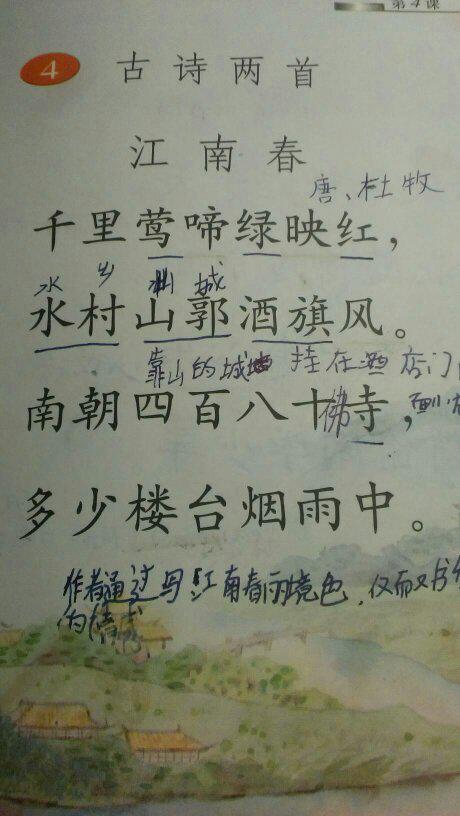 第4课
4 古诗两首
江南春
唐、杜牧
千里莺啼绿映红，
水乡 山城
水村山郭酒旗风。
靠山的城 挂在酒店门
南朝四百八十寺，
佛
多少楼台烟雨中。
作者通过写江南春雨境色，
的情